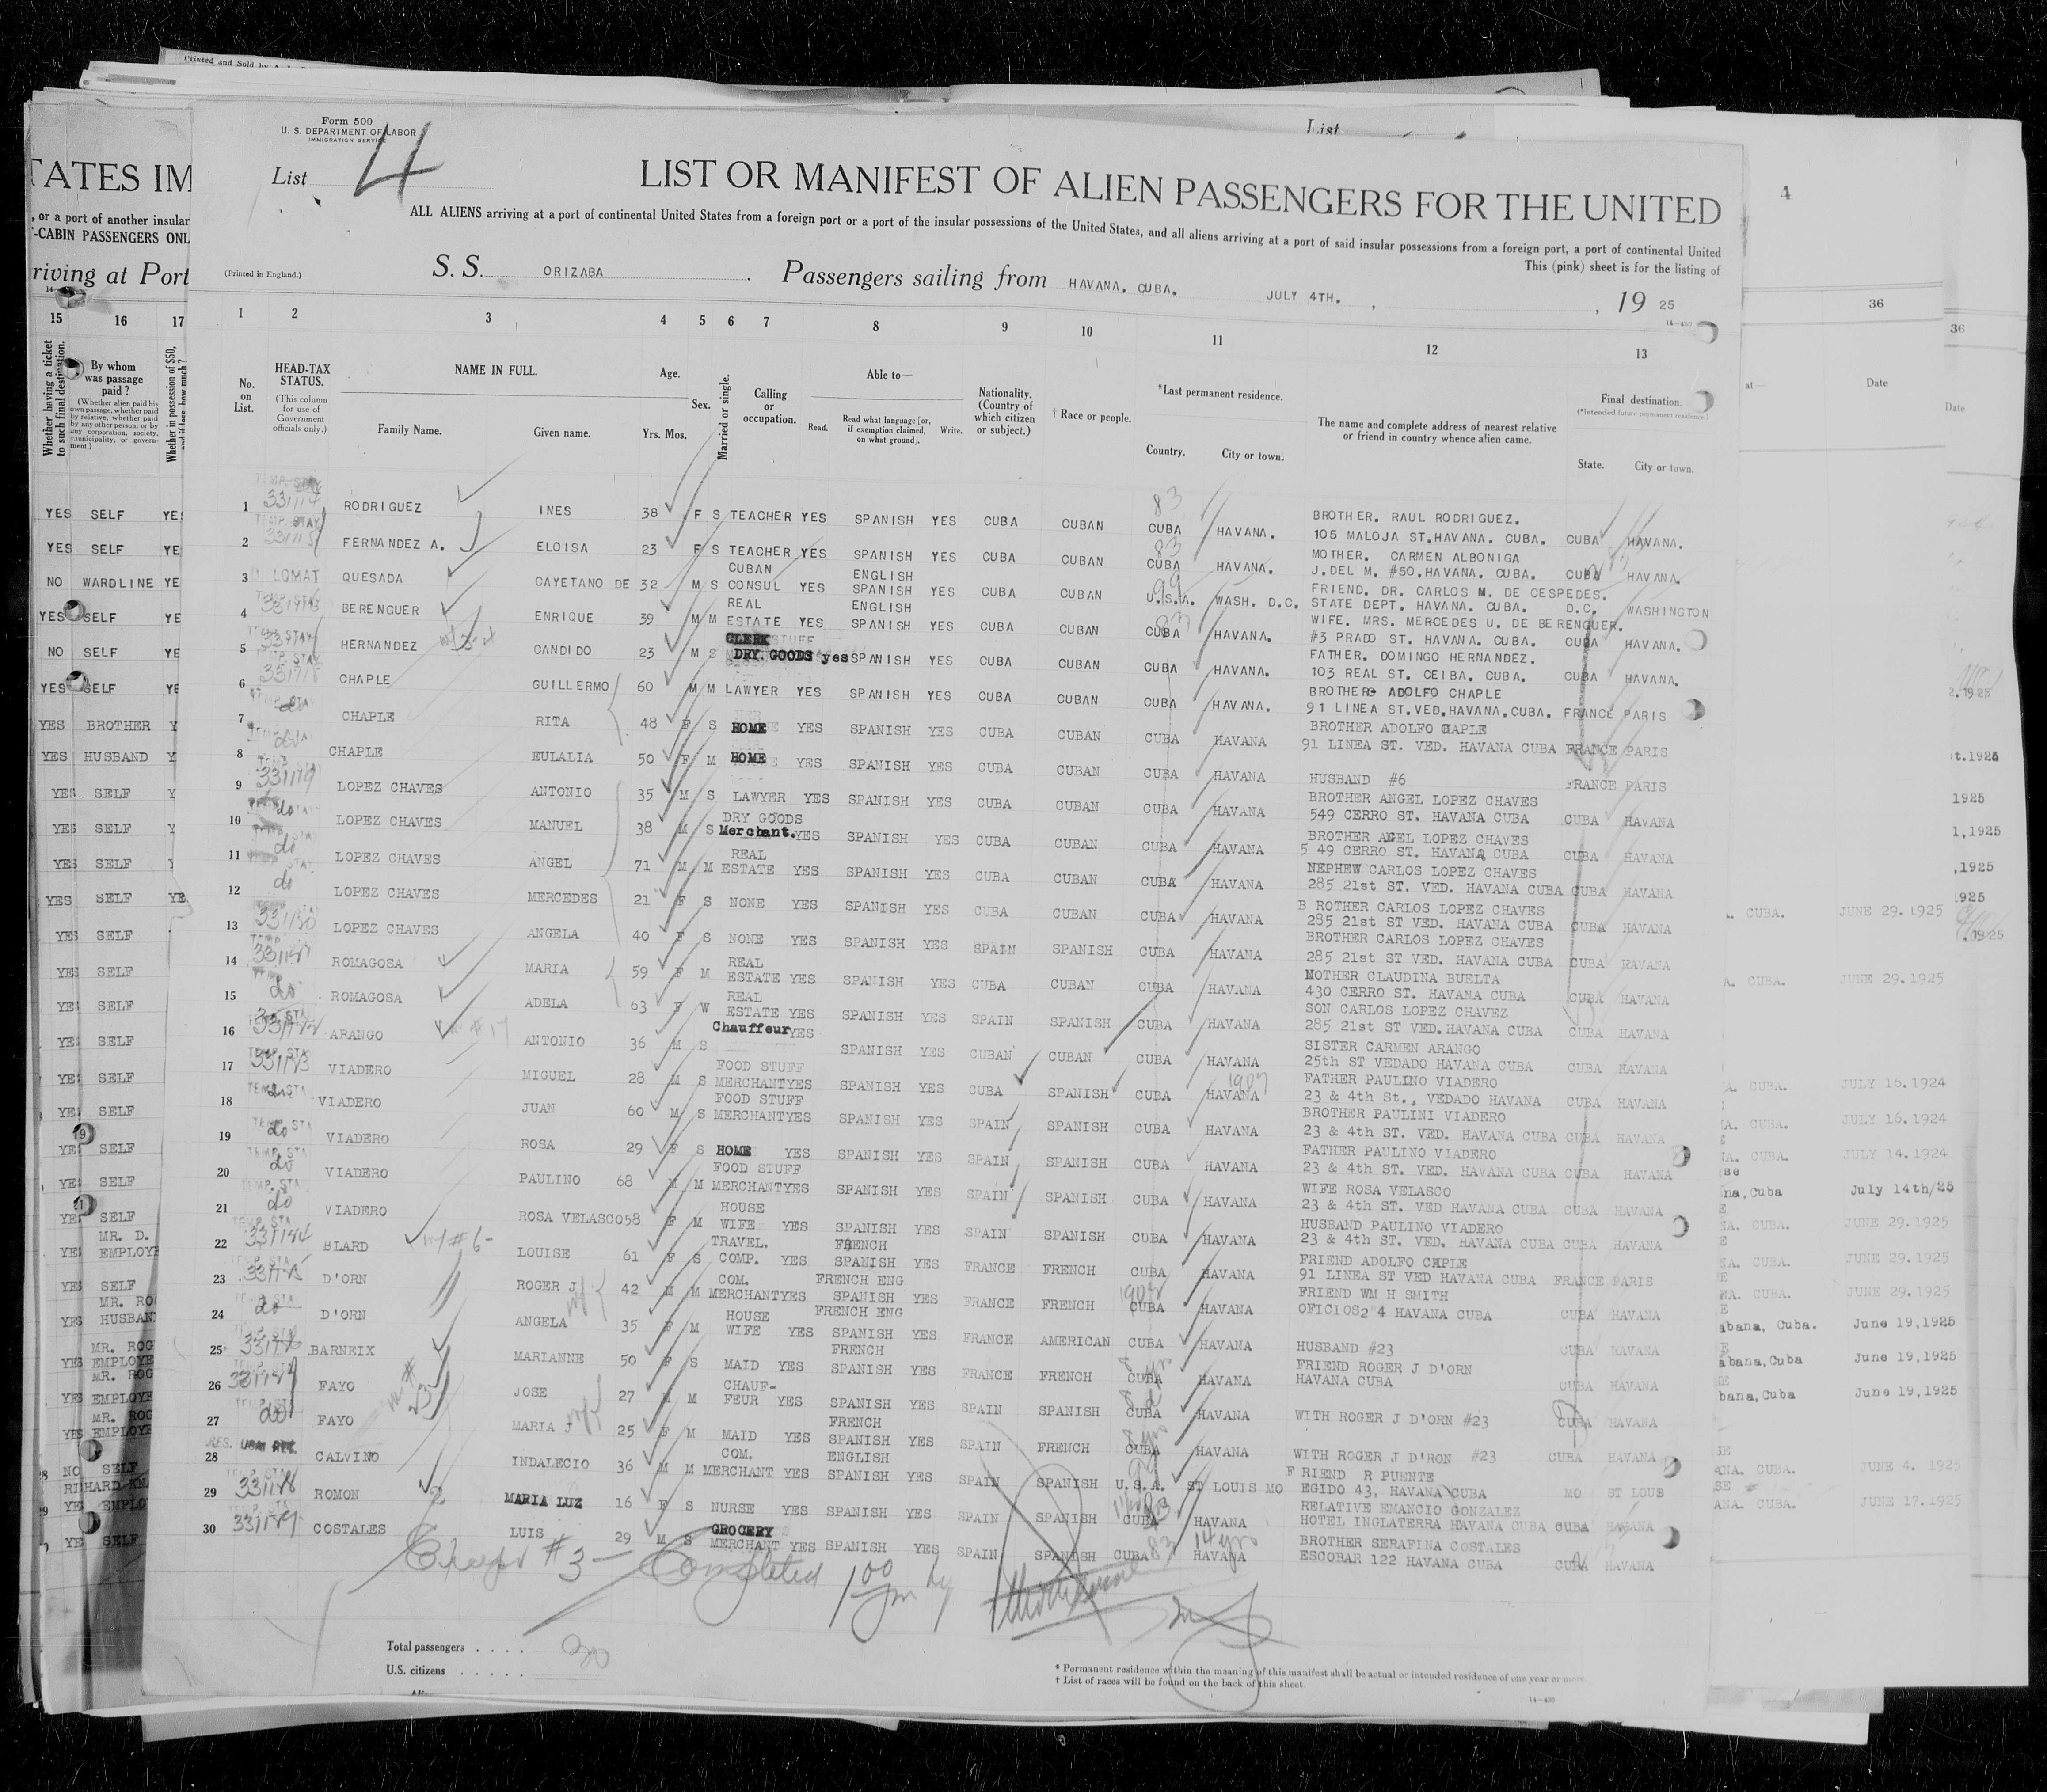 Printed and Sold by
List
Form 500
U. S. DEPARTMENT OF LABOR
IMMIGRATION SERVICE
List 4
LIST OR MANIFEST OF ALIEN PASSENGERS FOR THE UNITED
ALL ALIENS arriving at a port of continental United States from a foreign port or a port of the insular possessions of the United States, and all aliens arriving at a port of said insular possessions from a foreign port, a port of continental United
This (pink) sheet is for the listing of
(Printed in England.)
S. S. ORIZABA. Passengers sailing from HAVANA. CUBA. JULY 4TH. , 19 25
1 2 3 4 5 6 7 8 9 10 11 12 13
No. on List.
HEAD-TAX STATUS.
(This column for use of Government officials only.)
NAME IN FULL.
Family Name. Given name.
Age.
Yrs. Mos.
Sex.
Married or single.
Calling or occupation.
Able to—
Read. Read what language [or, if exemption claimed, on what ground]. Write.
Nationality. (Country of which citizen or subject.)
† Race or people.
*Last permanent residence.
Country. City or town.
The name and complete address of nearest relative or friend in country whence alien came.
Final destination.
(*Intended future permanent residence.)
State. City or town.
1 331114 RODRIGUEZ INES 38 F S TEACHER YES SPANISH YES CUBA CUBAN CUBA HAVANA. BROTHER. RAUL RODRIGUEZ. 105 MALOJA ST.HAVANA. CUBA. CUBA HAVANA.
2 FERNANDEZ A. ELOISA 23 F S TEACHER YES SPANISH YES CUBA CUBAN CUBA HAVANA. MOTHER. CARMEN ALBONIGA J.DEL M. #50.HAVANA. CUBA. CUBA HAVANA.
3 QUESADA CAYETANO DE 32 M S CUBAN CONSUL YES ENGLISH SPANISH YES CUBA CUBAN U.S.A. WASH. D.C. FRIEND. DR. CARLOS M. DE CESPEDES. STATE DEPT. HAVANA. CUBA. D.C. WASHINGTON
4 BERENGUER ENRIQUE 39 M M REAL ESTATE YES ENGLISH SPANISH YES CUBA CUBAN CUBA HAVANA. WIFE. MRS. MERCEDES U. DE BERENGUER. #3 PRADO ST. HAVANA. CUBA. CUBA HAVANA.
5 HERNANDEZ CANDIDO 23 M S CLERK DRY. GOODS yes SPANISH YES CUBA CUBAN CUBA HAVANA. FATHER. DOMINGO HERNANDEZ. 103 REAL ST. CEIBA. CUBA. CUBA HAVANA.
6 CHAPLE GUILLERMO 60 M M LAWYER YES SPANISH YES CUBA CUBAN CUBA HAVANA. BROTHER ADOLFO CHAPLE 91 LINEA ST.VED.HAVANA.CUBA. FRANCE PARIS
7 CHAPLE RITA 48 F S HOME YES SPANISH YES CUBA CUBAN CUBA HAVANA BROTHER ADOLFO CAPLE 91 LINEA ST. VED. HAVANA CUBA FRANCE PARIS
8 CHAPLE EULALIA 50 F M HOME YES SPANISH YES CUBA CUBAN CUBA HAVANA HUSBAND #6 FRANCE PARIS
9 331179 LOPEZ CHAVES ANTONIO 35 M S LAWYER YES SPANISH YES CUBA CUBAN CUBA HAVANA BROTHER ANGEL LOPEZ CHAVES 549 CERRO ST. HAVANA CUBA CUBA HAVANA
10 do LOPEZ CHAVES MANUEL 38 M S DRY GOODS Merchant. YES SPANISH YES CUBA CUBAN CUBA HAVANA BROTHER AGEL LOPEZ CHAVES 5 49 CERRO ST. HAVANA CUBA CUBA HAVANA
11 do LOPEZ CHAVES ANGEL 71 M M REAL ESTATE YES SPANISH YES CUBA CUBAN CUBA HAVANA NEPHEW CARLOS LOPEZ CHAVES 285 21st ST. VED. HAVANA CUBA CUBA HAVANA
12 do LOPEZ CHAVES MERCEDES 21 F S NONE YES SPANISH YES CUBA CUBAN CUBA HAVANA B ROTHER CARLOS LOPEZ CHAVES 285 21st ST VED. HAVANA CUBA CUBA HAVANA
13 LOPEZ CHAVES ANGELA 40 F S NONE YES SPANISH YES SPAIN SPANISH CUBA HAVANA BROTHER CARLOS LOPEZ CHAVES 285 21st ST VED. HAVANA CUBA CUBA HAVANA
14 ROMAGOSA MARIA 59 F M REAL ESTATE YES SPANISH YES CUBA CUBAN CUBA HAVANA MOTHER CLAUDINA BUELTA 430 CERRO ST. HAVANA CUBA CUBA HAVANA
15 do ROMAGOSA ADELA 63 F W REAL ESTATE YES SPANISH YES SPAIN SPANISH CUBA HAVANA SON CARLOS LOPEZ CHAVEZ 285 21st ST VED.HAVANA CUBA CUBA HAVANA
16 ARANGO ANTONIO 36 M S Chauffeur YES SPANISH YES CUBAN CUBAN CUBA HAVANA SISTER CARMEN ARANGO 25th ST VEDADO HAVANA CUBA CUBA HAVANA
17 VIADERO MIGUEL 28 M S FOOD STUFF MERCHANT YES SPANISH YES CUBA SPANISH CUBA HAVANA FATHER PAULINO VIADERO 23 & 4th St., VEDADO HAVANA CUBA HAVANA
18 VIADERO JUAN 60 M S FOOD STUFF MERCHANT YES SPANISH YES SPAIN SPANISH CUBA HAVANA BROTHER PAULINI VIADERO 23 & 4th ST. VED. HAVANA CUBA CUBA HAVANA
19 do VIADERO ROSA 29 F S HOME YES SPANISH YES SPAIN SPANISH CUBA HAVANA FATHER PAULINO VIADERO 23 & 4th ST. VED. HAVANA CUBA CUBA HAVANA
20 do VIADERO PAULINO 68 M M FOOD STUFF MERCHANT YES SPANISH YES SPAIN SPANISH CUBA HAVANA WIFE ROSA VELASCO 23 & 4th ST. VED HAVANA CUBA CUBA HAVANA
21 do VIADERO ROSA VELASCO 58 F M HOUSE WIFE YES SPANISH YES SPAIN SPANISH CUBA HAVANA HUSBAND PAULINO VIADERO 23 & 4th ST. VED. HAVANA CUBA CUBA HAVANA
22 BLARD LOUISE 61 F S TRAVEL. COMP. YES FRENCH SPANISH YES FRANCE FRENCH CUBA HAVANA FRIEND ADOLFO CHPLE 91 LINEA ST VED HAVANA CUBA FRANCE PARIS
23 D'ORN ROGER J 42 M M COM. MERCHANT YES FRENCH ENG SPANISH YES FRANCE FRENCH CUBA HAVANA FRIEND WM H SMITH OFICIOS2 4 HAVANA CUBA CUBA HAVANA
24 do D'ORN ANGELA 35 F M HOUSE WIFE YES FRENCH ENG SPANISH YES FRANCE AMERICAN CUBA HAVANA HUSBAND #23 CUBA HAVANA
25 BARNEIX MARIANNE 50 F S MAID YES FRENCH SPANISH YES FRANCE FRENCH CUBA HAVANA FRIEND ROGER J D'ORN HAVANA CUBA CUBA HAVANA
26 FAYO JOSE 27 M M CHAUF- FEUR YES SPANISH YES SPAIN SPANISH CUBA HAVANA WITH ROGER J D'ORN #23 CUBA HAVANA
27 do FAYO MARIA J 25 F M MAID YES FRENCH SPANISH YES SPAIN FRENCH CUBA HAVANA WITH ROGER J D'RON #23 CUBA HAVANA
28 CALVINO INDALECIO 36 M M COM. MERCHANT YES ENGLISH SPANISH YES SPAIN SPANISH U.S.A. ST LOUIS MO F RIEND R PUENTE EGIDO 43, HAVANA CUBA MO ST LOUS
29 ROMON MARIA LUZ 16 F S NURSE YES SPANISH YES SPAIN SPANISH CUBA HAVANA RELATIVE EMANCIO GONZALEZ HOTEL INGLATERRA HAVANA CUBA CUBA HAVANA
30 COSTALES LUIS 29 M S GROCERY MERCHANT YES SPANISH YES SPAIN SPANISH CUBA 14 yrs HAVANA BROTHER SERAFINA COSTALES ESCOBAR 122 HAVANA CUBA CUBA HAVANA
Except #3 — Completed 1 00 pm by
Total passengers . . . . 30
U.S. citizens . . . . .
* Permanent residence within the meaning of this manifest shall be actual or intended residence of one year or more.
† List of races will be found on the back of this sheet.
14—430
TATES IM
, or a port of another insular
-CABIN PASSENGERS ONL
riving at Port
15 16 17
Whether having a ticket to such final destination.
By whom was passage paid?
(Whether alien paid his own passage, whether paid by relative, whether paid by any other person, or by any corporation, society, municipality, or government.)
Whether in possession of $50,
YES SELF YES
YES SELF YE
NO WARDLINE YE
YES SELF YE
NO SELF YE
YES SELF YE
YES BROTHER Y
YES HUSBAND Y
YES SELF Y
YES SELF Y
YES SELF
YES SELF YE
YES SELF
YES SELF
YES SELF
YES SELF
YES SELF
YES SELF
YES SELF
YES SELF
YES SELF
MR. D.
YES EMPLOYE
YES SELF
MR. RO
YES HUSBAN
MR. ROG
YES EMPLOYE
MR. ROG
YES EMPLOYE
MR. ROG
YES EMPLOYE
NO SELF
YES EMPLO
YE SELF
4
36
36
at— Date
Date
2.1925
t.1925
1925
1,1925
,1925
1925
CUBA. JUNE 29.1925
.1925
A. CUBA. JUNE 29.1925
A. CUBA. JULY 15.1924
A. CUBA. JULY 16.1924
A. CUBA. JULY 14.1924
na,Cuba July 14th/25
A. CUBA. JUNE 29.1925
A. CUBA. JUNE 29.1925
A. CUBA. JUNE 29.1925
abana, Cuba. June 19,1925
abana,Cuba June 19,1925
bana,Cuba June 19,1925
ANA. CUBA. JUNE 4. 1925
ANA. CUBA. JUNE 17.1925